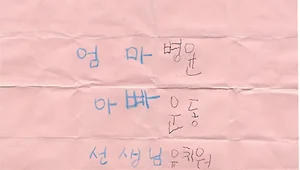 엄마 병원
아빠 운동
선생님 유치원